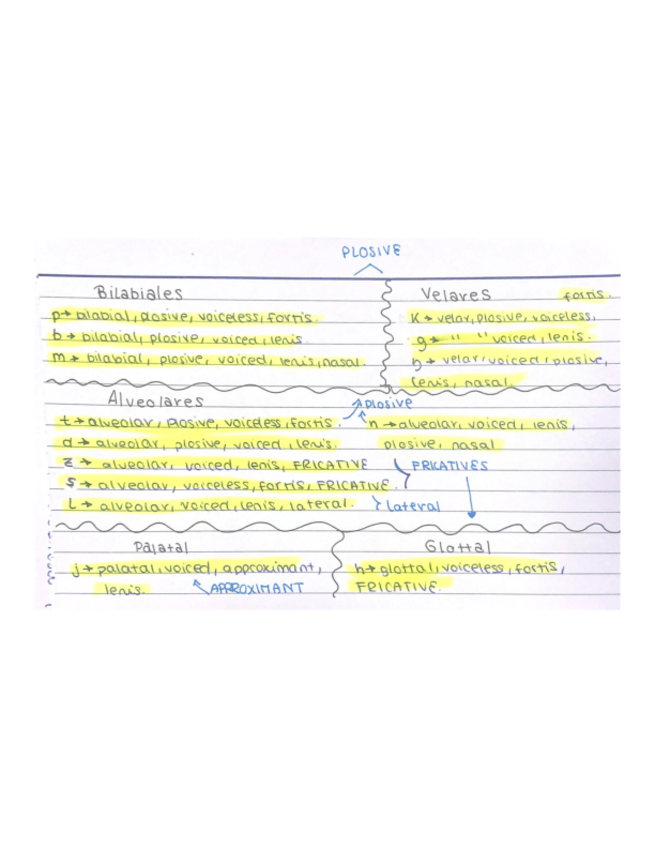 PLOSIVE
Bilabiales
p→ bilabial, plosive, voiceless, fortis.
b→ bilabial, plosive, voiced, lenis.
m→ bilabial, plosive, voiced, lenis, nasal.
Velares fortis.
K→ velar, plosive, voiceless,
g→ " " voiced, lenis.
ŋ→ velar, voiced, plosive,
lenis, nasal.
Alveolares
t→ alveolar, plosive, voiceless, fortis.
d→ alveolar, plosive, voiced, lenis.
z→ alveolar, voiced, lenis, FRICATIVE
s→ alveolar, voiceless, fortis, FRICATIVE.
l→ alveolar, voiced, lenis, lateral.
plosive
n→ alveolar, voiced, lenis,
plosive, nasal
FRICATIVES
lateral
Palatal
j→ palatal, voiced, approximant,
lenis.
APPROXIMANT
Glottal
h→ glottal, voiceless, fortis,
FRICATIVE.